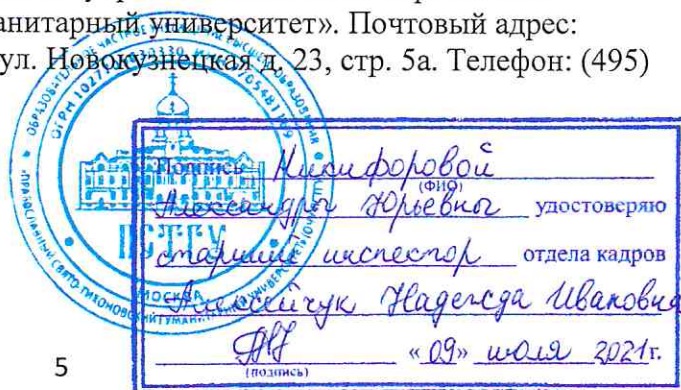 анитарный университет». Почтовый адрес:
ул. Новокузнецкая д. 23, стр. 5а. Телефон: (495)
ПСТГУ
МОСКВА
Подпись Никифоровой
(ФИО)
Александры Юрьевны удостоверяю
старший инспектор отдела кадров
Алексейчук Надежда Ивановна
(подпись)
«09» июля 2021г.
5